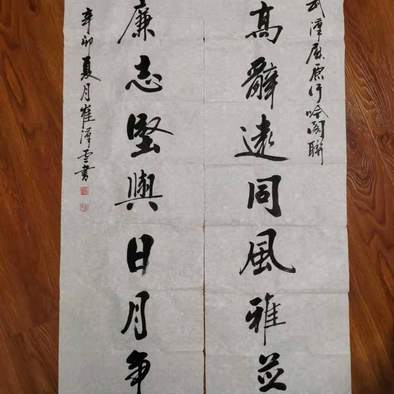 武漢屈原行吟閣聯
高辭遠同風雅並
廉志堅與日月爭
辛卯夏月崔雲書